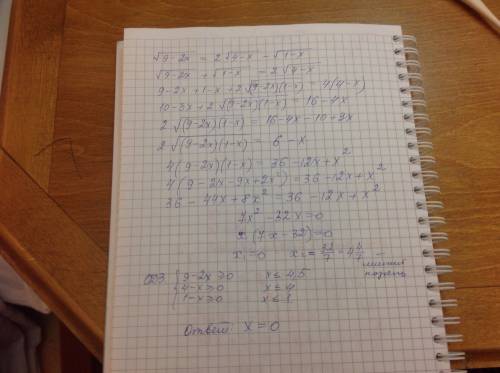 √9-2x = 2√4-x - √1-x
√9-2x + √1-x = 2√4-x
9-2x+1-x+2√(9-2x)(1-x) = 4(4-x)
10-3x+2√(9-2x)(1-x) = 16-4x
2√(9-2x)(1-x) = 16-4x-10+3x
2√(9-2x)(1-x) = 6-x
4(9-2x)(1-x) = 36-12x+x²
4(9-2x-9x+2x²) = 36-12x+x²
36-44x+8x² = 36-12x+x²
7x²-32x=0
x(7x-32)=0
x₁=0 x₂=32/7=4 4/7 –
корень
ОДЗ { 9-2x≥0 x≤4,5
4-x≥0 x≤4
1-x≥0 x≤1
Ответ: x=0